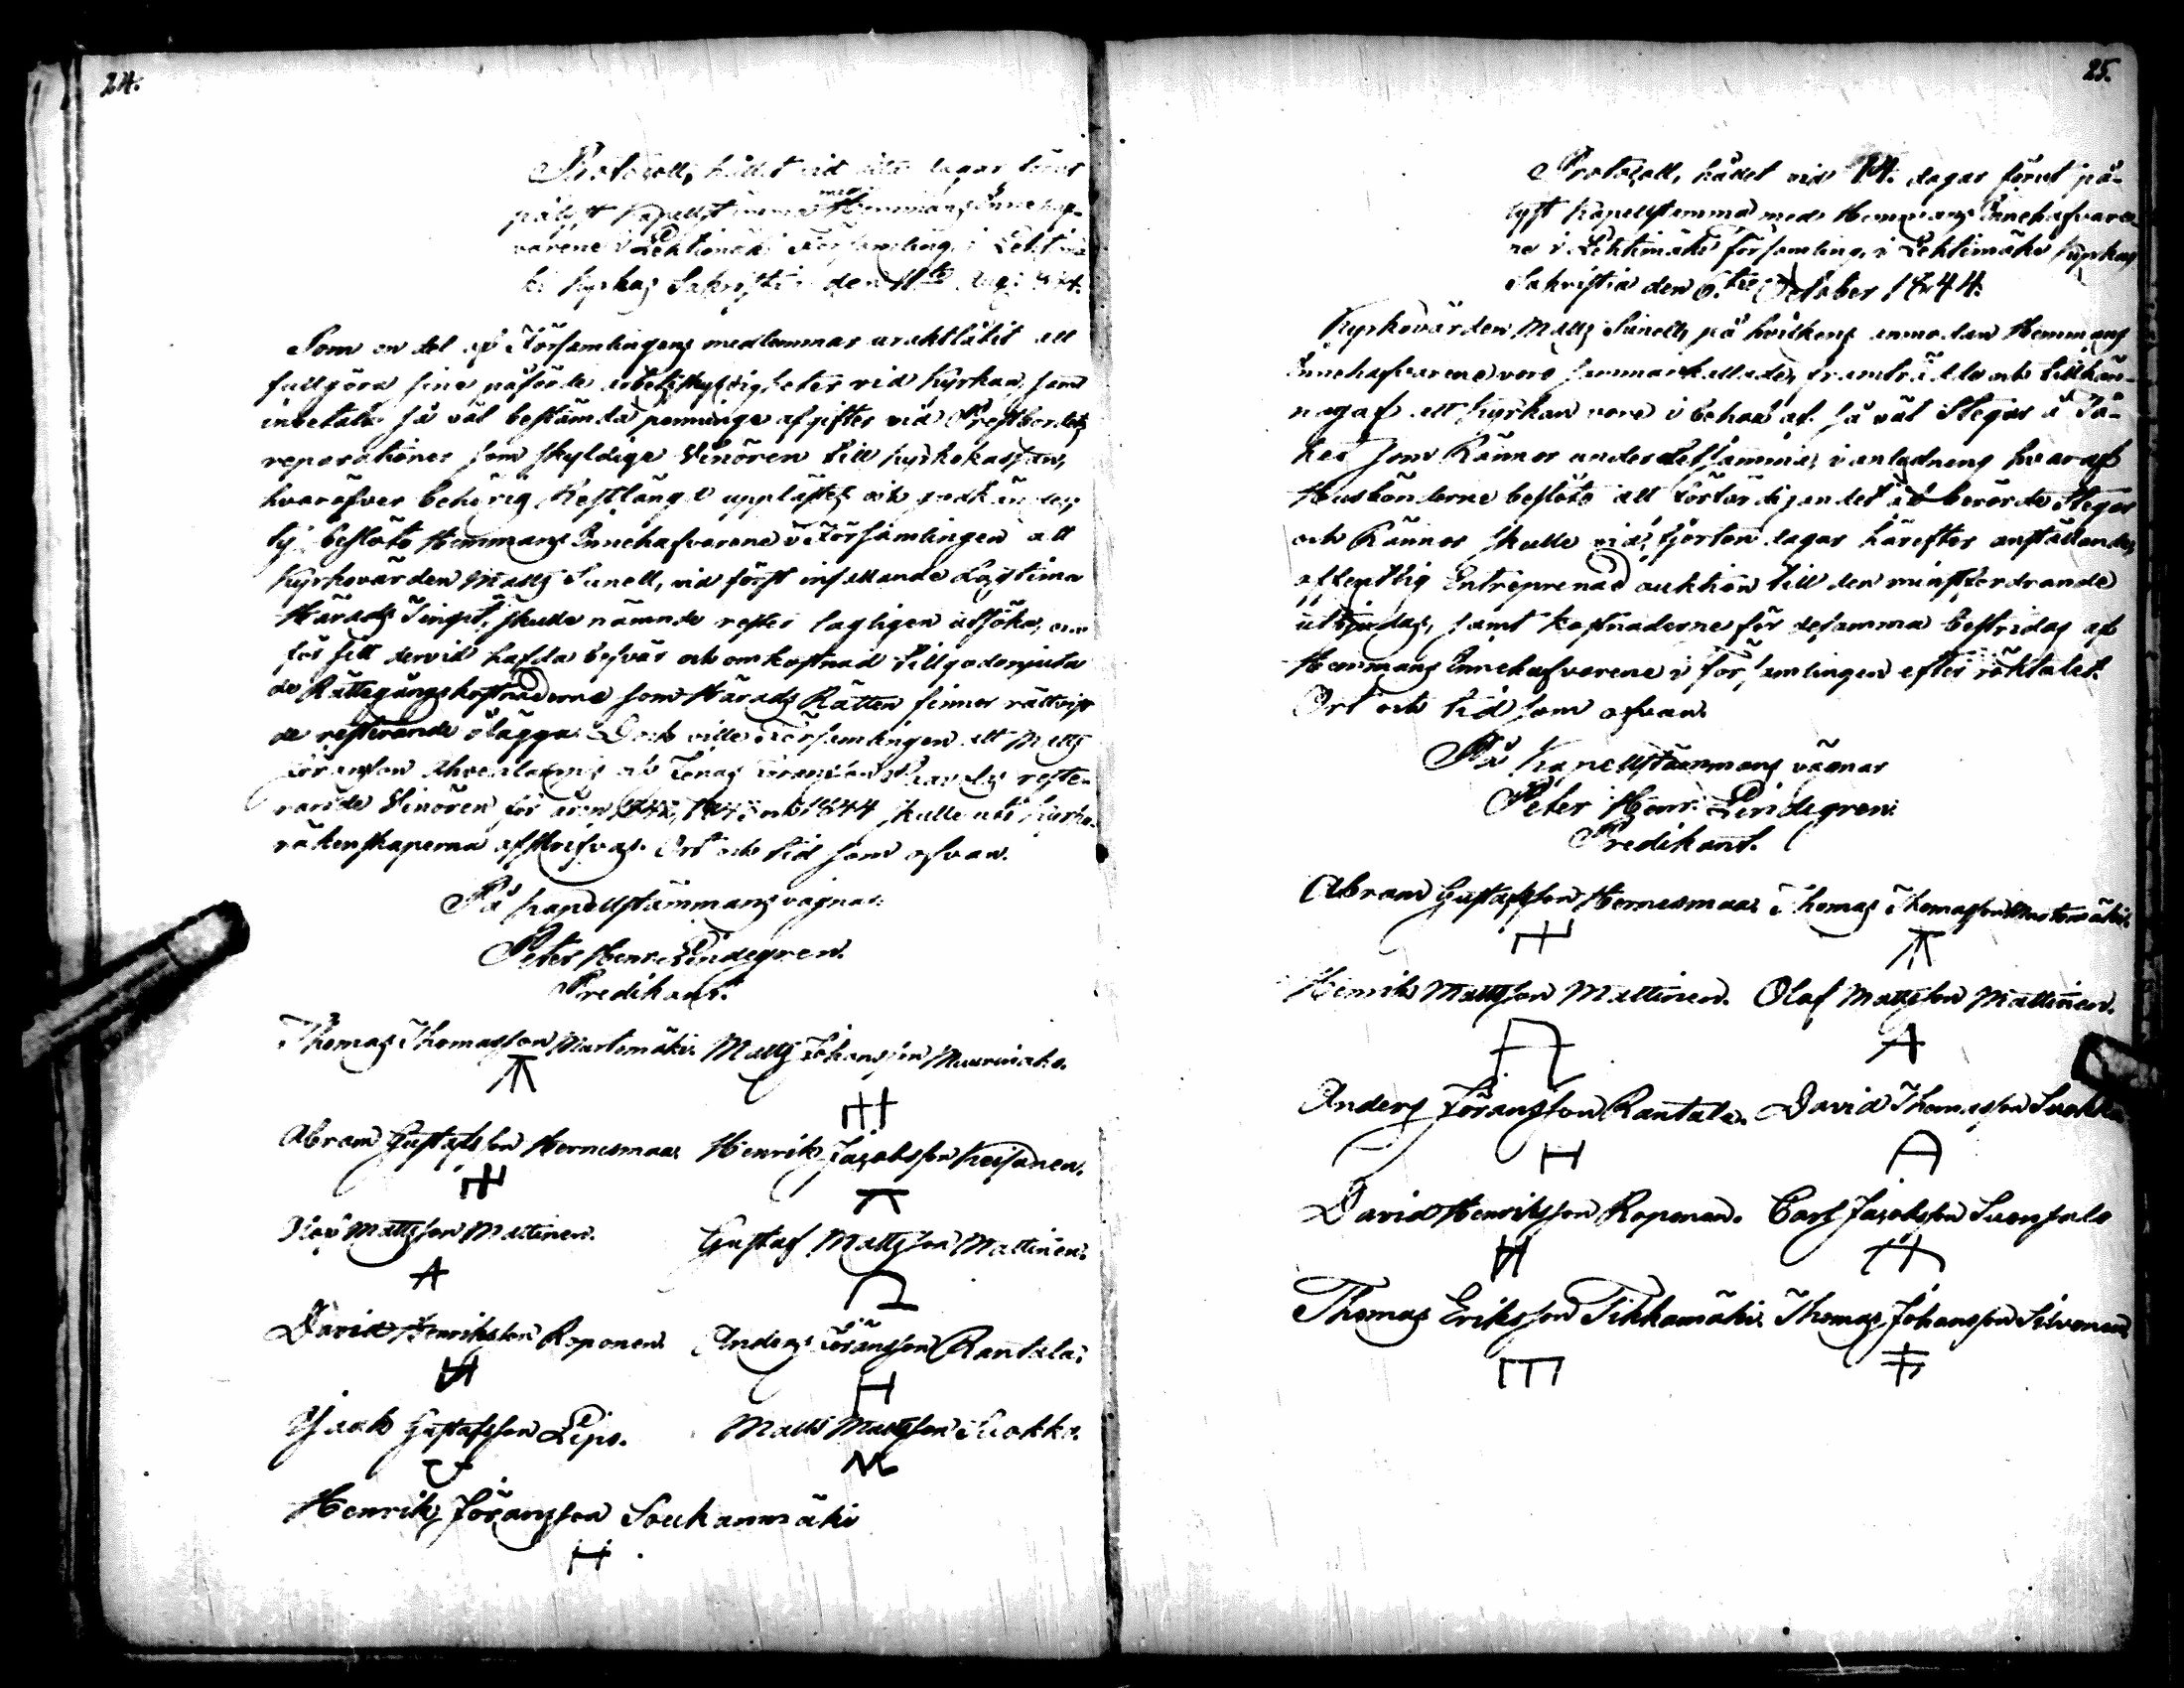 24.
Protocoll, hållit vid åtta dagar förut
pålyst Kapellstämma med Hemmans Innehaf-
varene i Lehtimäki Församling, i Lehtimä-
ki Kyrkas Sakristia den 11te Aug: 844.
Som en del af Församlingens medlemmar uraktlåtit att
fullgöra sine påförde arbetsskyldigheter vid Kyrkan, samt
inbetala så väl bestämda penninge afgifter vid Prestbordets
reparationer som skyldige Vinören till Kyrkokassan,
hvaröfver behörig Restlängd upplästes och godkändes,
ty beslöto Hemmans Innehafvarene i Församlingen att
Kyrkovärden Matts Sunell, vid först infallande Lagtima
Härads Tinget, skulle nämnde rester lagligen utsöka, och
för sitt dervid hafda besvär och omkostnad tillgodonjuta
de Rättegångskostnaderne som Härads Rätten finner rättvist
de resterande ålägga. Dock ville Församlingen att Matts
Göransson Ahvenlampi och Jonas reste-
rande Vinören för åren 1842, 1843 och 1844 skulle uti Kyrko-
räkenskaperna afskrifvas. Ort och tid som ofvan.
På Kapellstämmans vägnar:
Peter Henr: Lindegren.
Predikant.
Thomas Thomasson Martomäki. Matts Johansson Muurinaho.
Abram Gustafsson Hernesmaa. Henrik Jacobsson Keisanen.
Olof Mattsson Mattinen. Gustaf Mattsson Mattinen.
David Henriksson Roponen. Anders Göransson Rantala.
Jaak Gustafsson Lipo. Matts Mattsson Suokko.
Henrik Göransson Soukanmäki
25.
Protocoll, hållet vid 14. dagar förut på-
lyst Kapellstämma med Hemmans Innehafvare-
ne i Lehtimäki församling, i Lehtimäki Kyrkas
Sakristia den 6.te October 1844.
Kyrkovärden Matts Sunell, på hvilkens anmodan Hemmans
Innehafvarene voro sammankallade, framträdde och tillkän-
nagaf att Kyrkan vore i behof af så väl Stegar å Ta-
ket som Rännor under detsamma, i anledning hvaraf
Husbönderne beslöto att förfärdigandet af berörde Stegar
och Rännor skulle vid, fjorton dagar härefter anställande,
offentlig Entreprenad auktion till den minstfordrande
utbjudas, samt kostnaderne för desamma bestridas af
Hemmans Innehafvarene i församlingen efter röktalet.
Ort och tid som ofvan.
På Kapellstämmans vägnar
Peter Henr: Lindegren.
Predikant.
Abram Gustafsson Hernesmaa. Thomas Thomasson Martomäki.
Henrik Mattsson Mattinen. Olof Mattsson Mattinen.
Anders Göransson Rantala. David Thomasson Suokko
David Henriksson Roponen. Carl Jacobsson Suonsalo
Thomas Eriksson Tikkamäki. Thomas Johansson Silvonen